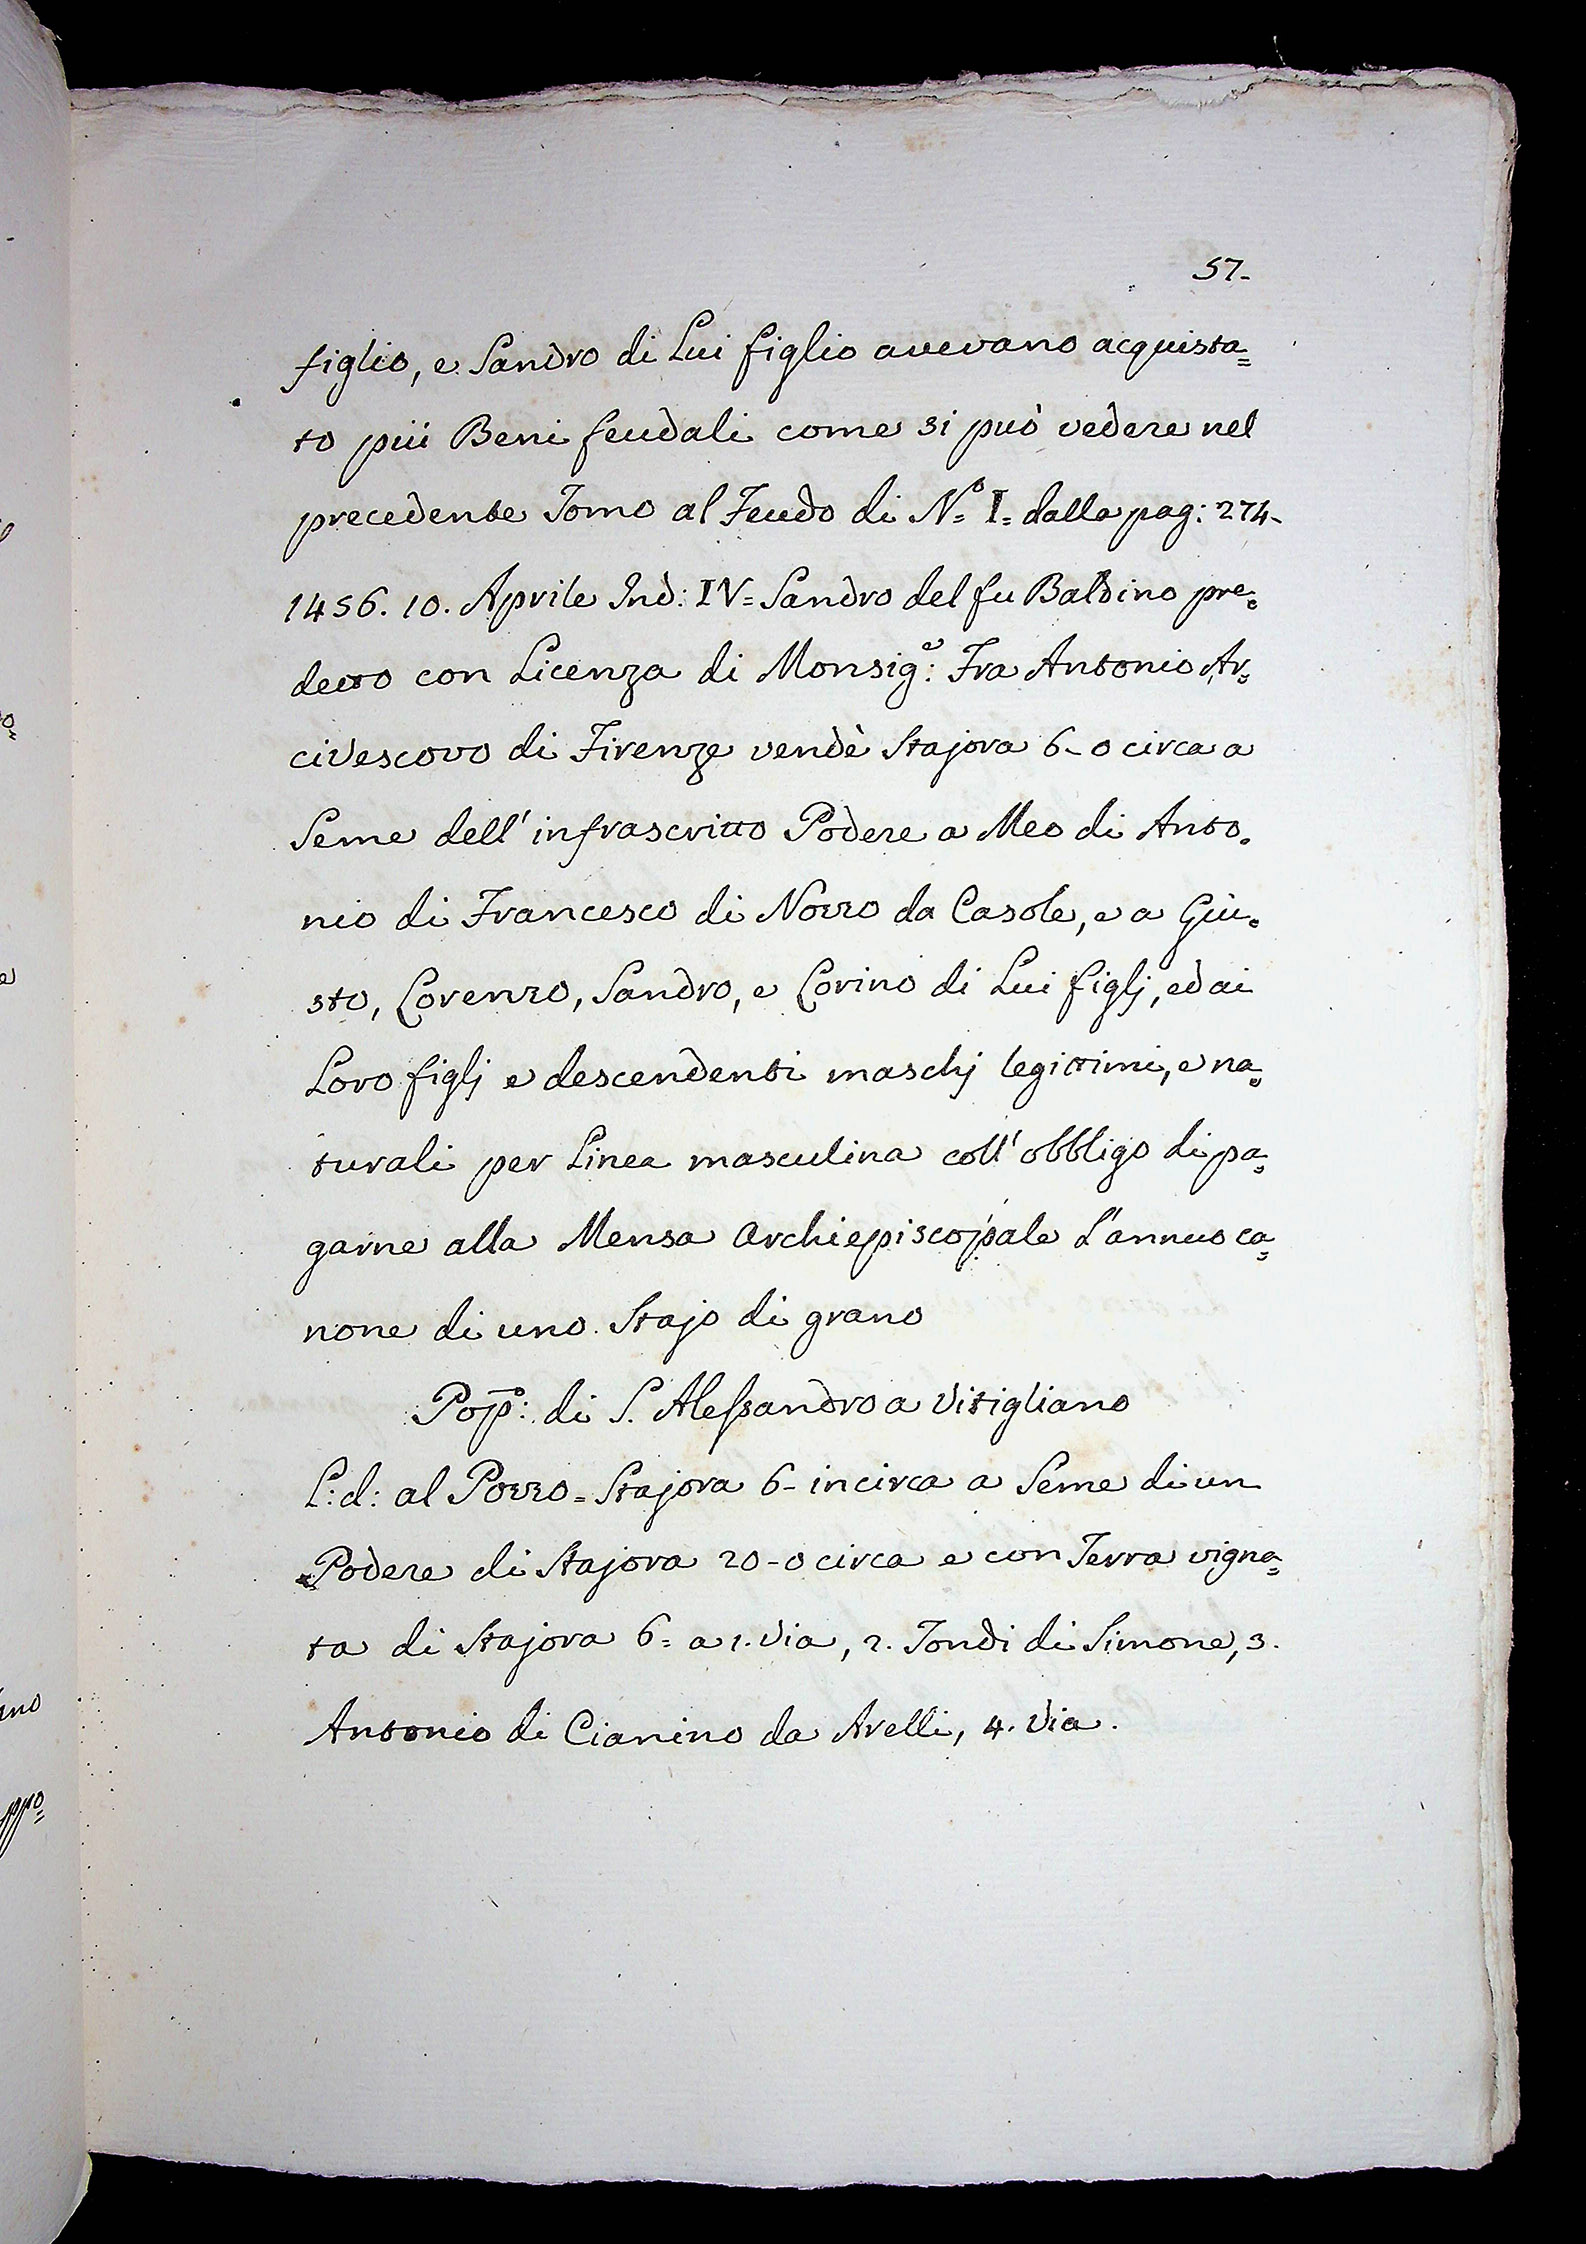 57.
figlio, e Sandro di Lui figlio avevano acquista=
to più Beni feudali come si può vedere nel
precedente Tomo al Feudo di N.° I= dalla pag: 274-
1456. 10. Aprile Ind: IV= Sandro del fu Baldino pre=
detto con Licenza di Monsig.e: Fra Antonio Ar=
civescovo di Firenze vendè Stajora 6-0 circa a
Seme dell'infrascritto Podere a Meo di Anto=
nio di Francesco di Nozzo da Casole, e a Giu=
sto, Lorenzo, Sandro, e Lorino di Lui figlj, ed ai
Loro figlj e descendenti maschj legittimi, e na=
turali per Linea masculina coll'obbligo di pa=
garne alla Mensa Archiepiscopale L'annuo ca=
none di uno Stajo di grano
Pop.o: di S. Alessandro a Vitigliano
L: d: al Pozzo= Stajora 6- incirca a Seme di un
Podere di Stajora 20-0 circa e con Terra vigna=
ta di Stajora 6= a 1. Via, 2. Tondi di Simone, 3.
Antonio di Cianino da Avelli, 4. Via.